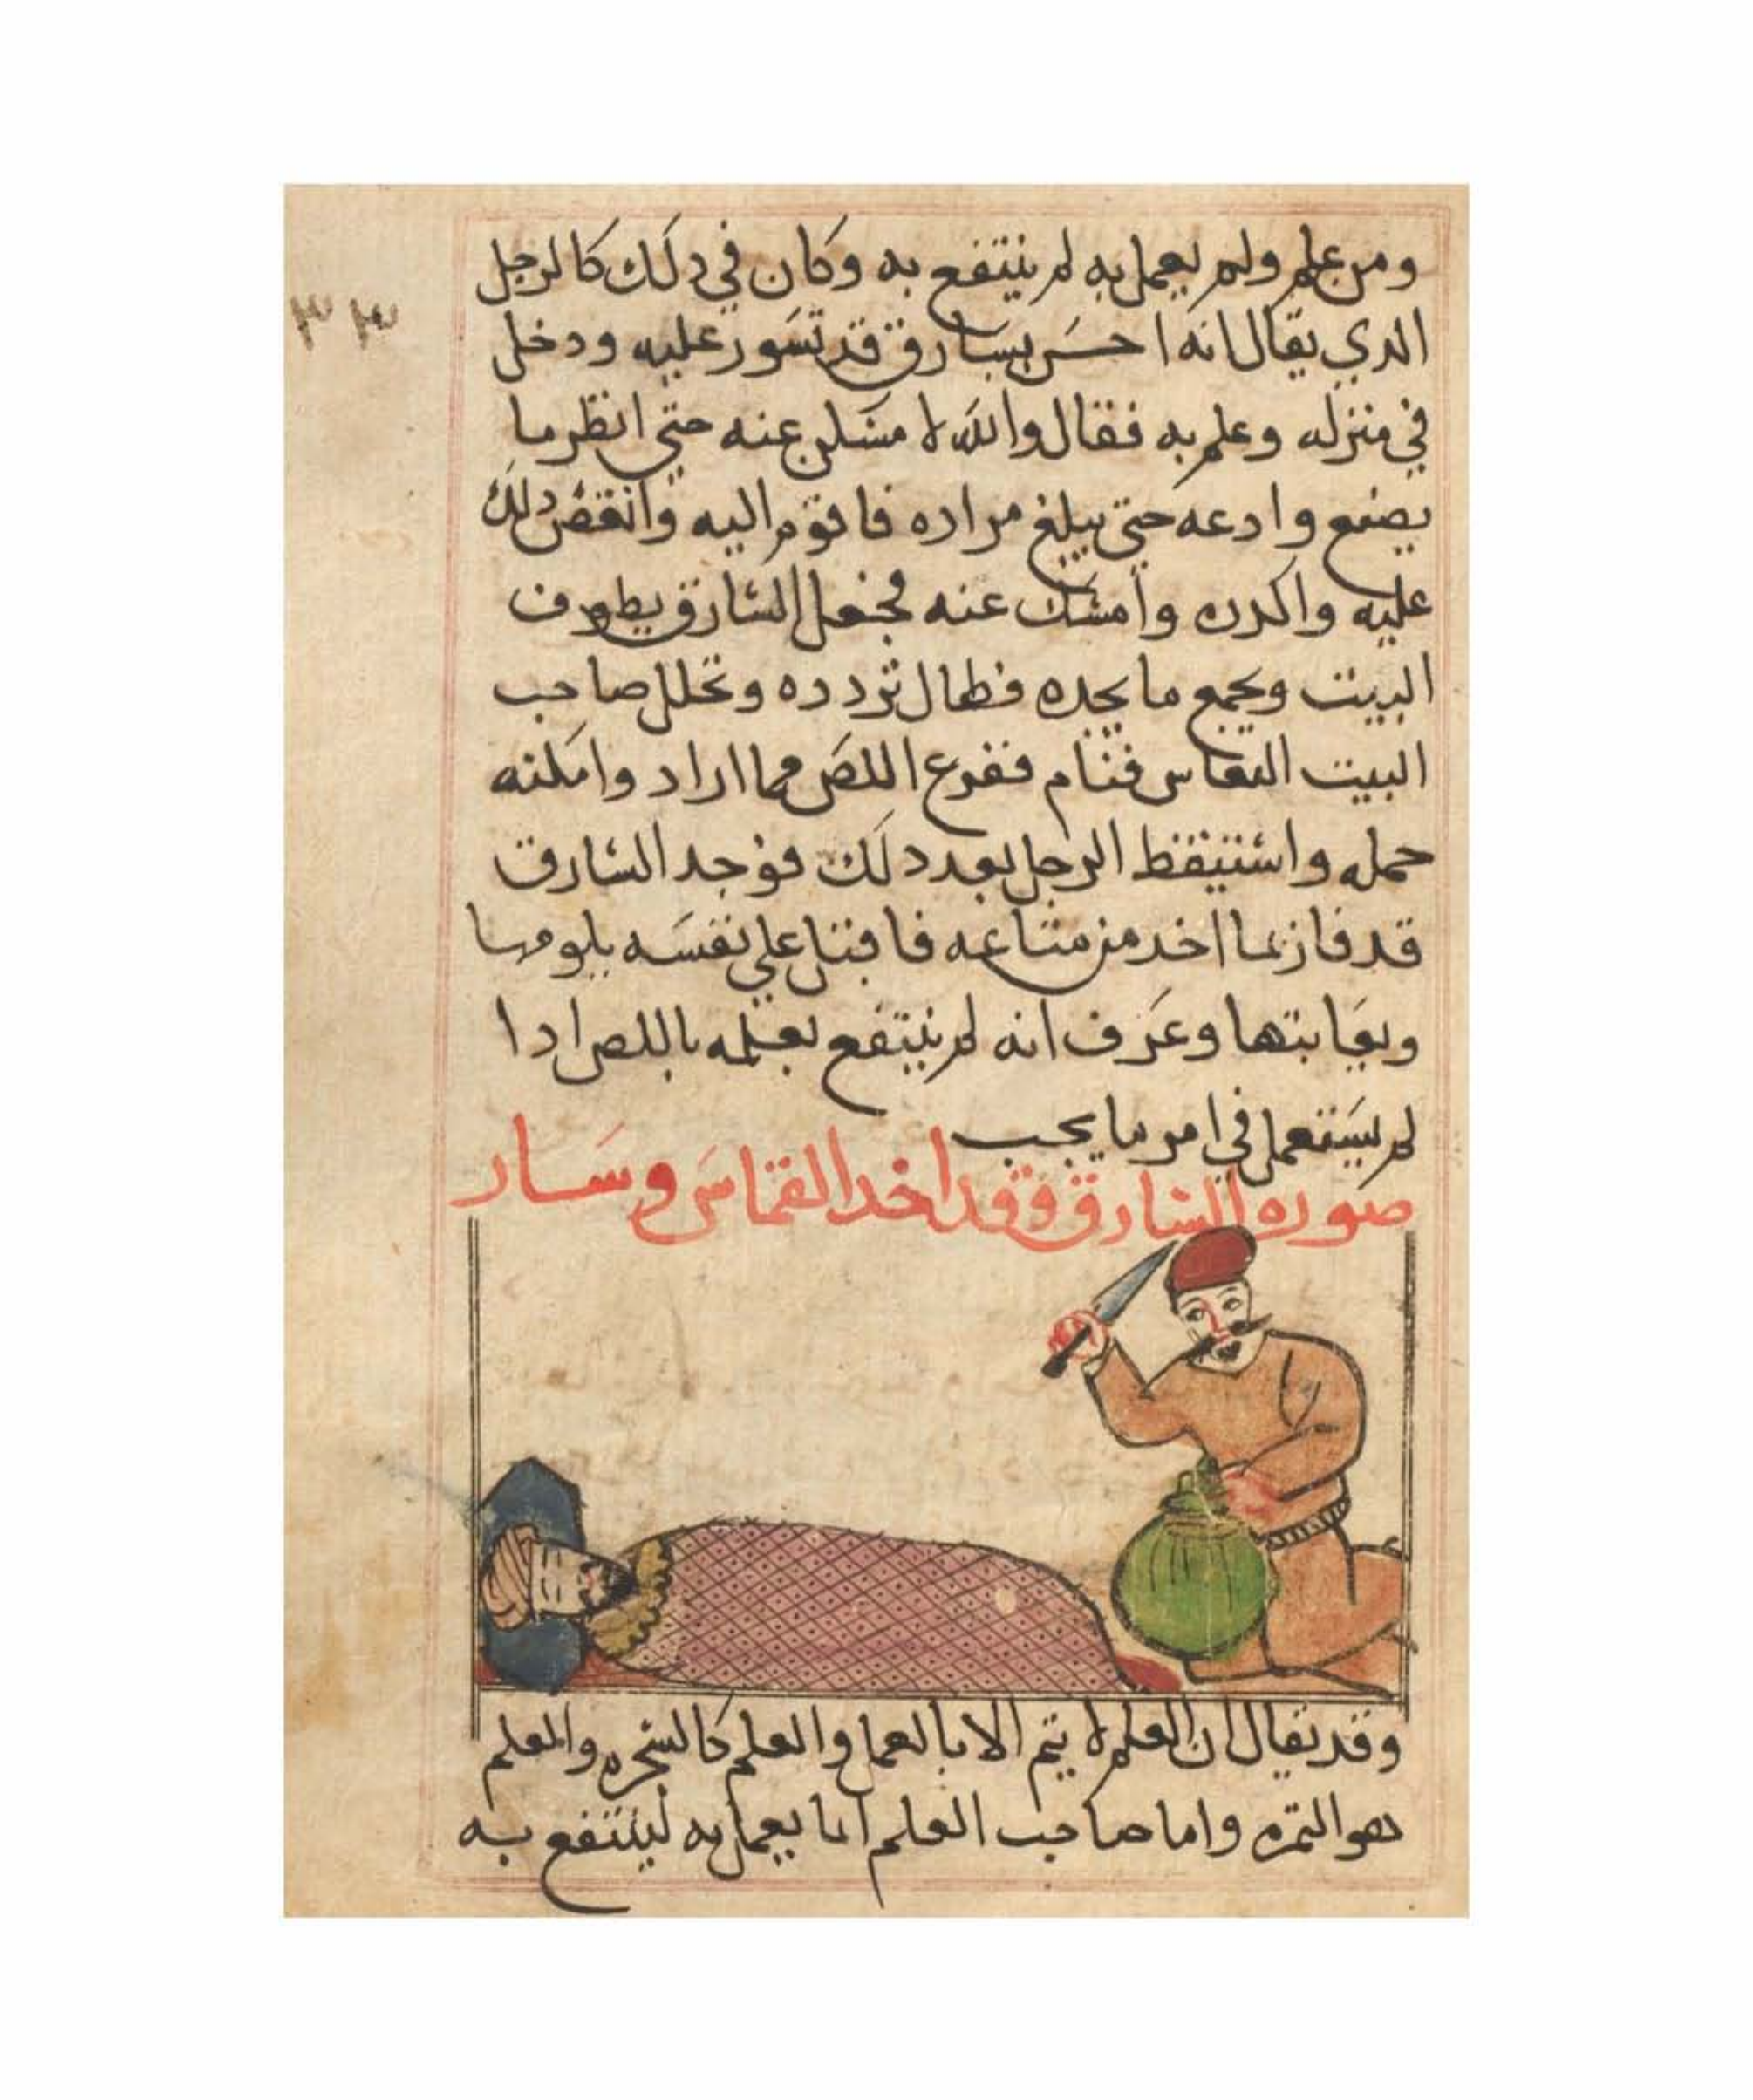 ومن علم ولم يعمل به لم ينتفع به وكان في دلك كالرجل
٣٣
الدي يقال انه احس بسارق قد تسور عليه ودخل
في منزله وعلم به فقال والله لا مسكن عنه حتي انظر ما
يصنع وادعه حتي يبلغ مراده فاقوم اليه وانقض دلك
عليه واكدره وامسك عنه فجعل السارق يطوف
البيت ويجمع ما يجده فطال تردده وتخلل صاحب
البيت النعاس فنام ففرع اللص مما اراد وامكنه
حمله واستيقظ الرجل بعد دلك فوجد السارق
قد فاز بما اخد من متاعه فاقبل علي نفسه يلومها
ويعاتبها وعرف انه لم ينتفع بعلمه باللص ادا
لم يستعمل في امر ما يجب
صوره السارق وقد اخد القماس وسار
وقد يقال ان العلم لا يتم الا بالعمل والعلم كالشجره والمعلم
هو الثمره واما صاحب العلم انما يعمل به لينتفع به